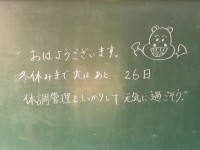 おはようございます。
冬休みまで実はあと 26日
体調管理をしっかりして 元気に過ごそう。